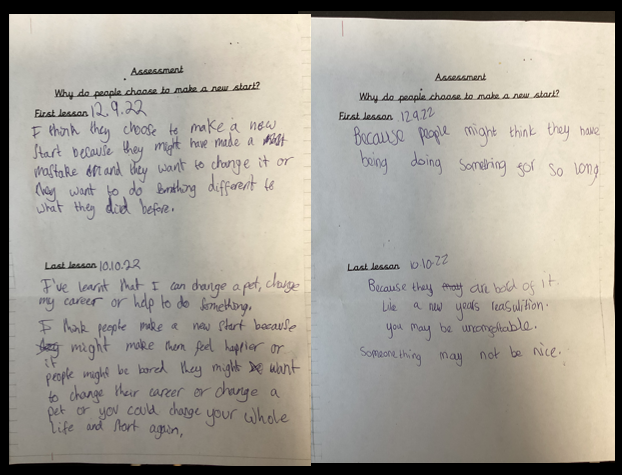 Assessment
Why do people choose to make a new start?
First lesson 12.9.22
I think they choose to make a new
start because they might have made a
mastake and they want to change it or
they want to do something different to
what they did before.
Last lesson 10.10.22
I've learnt that I can change a pet, change
my career or help to do something.
I think people make a new start because
it might make them feel happier or
people might be bored they might want
to change their career or change a
pet or you could change your whole
life and start again,
Assessment
Why do people choose to make a new start?
First lesson 12.9.22
Because people might think they have
being doing something for so long
Last lesson 10.10.22
Because they are bord of it.
Like a new years reasulition.
you may be uncomfortable.
Someonething may not be nice.